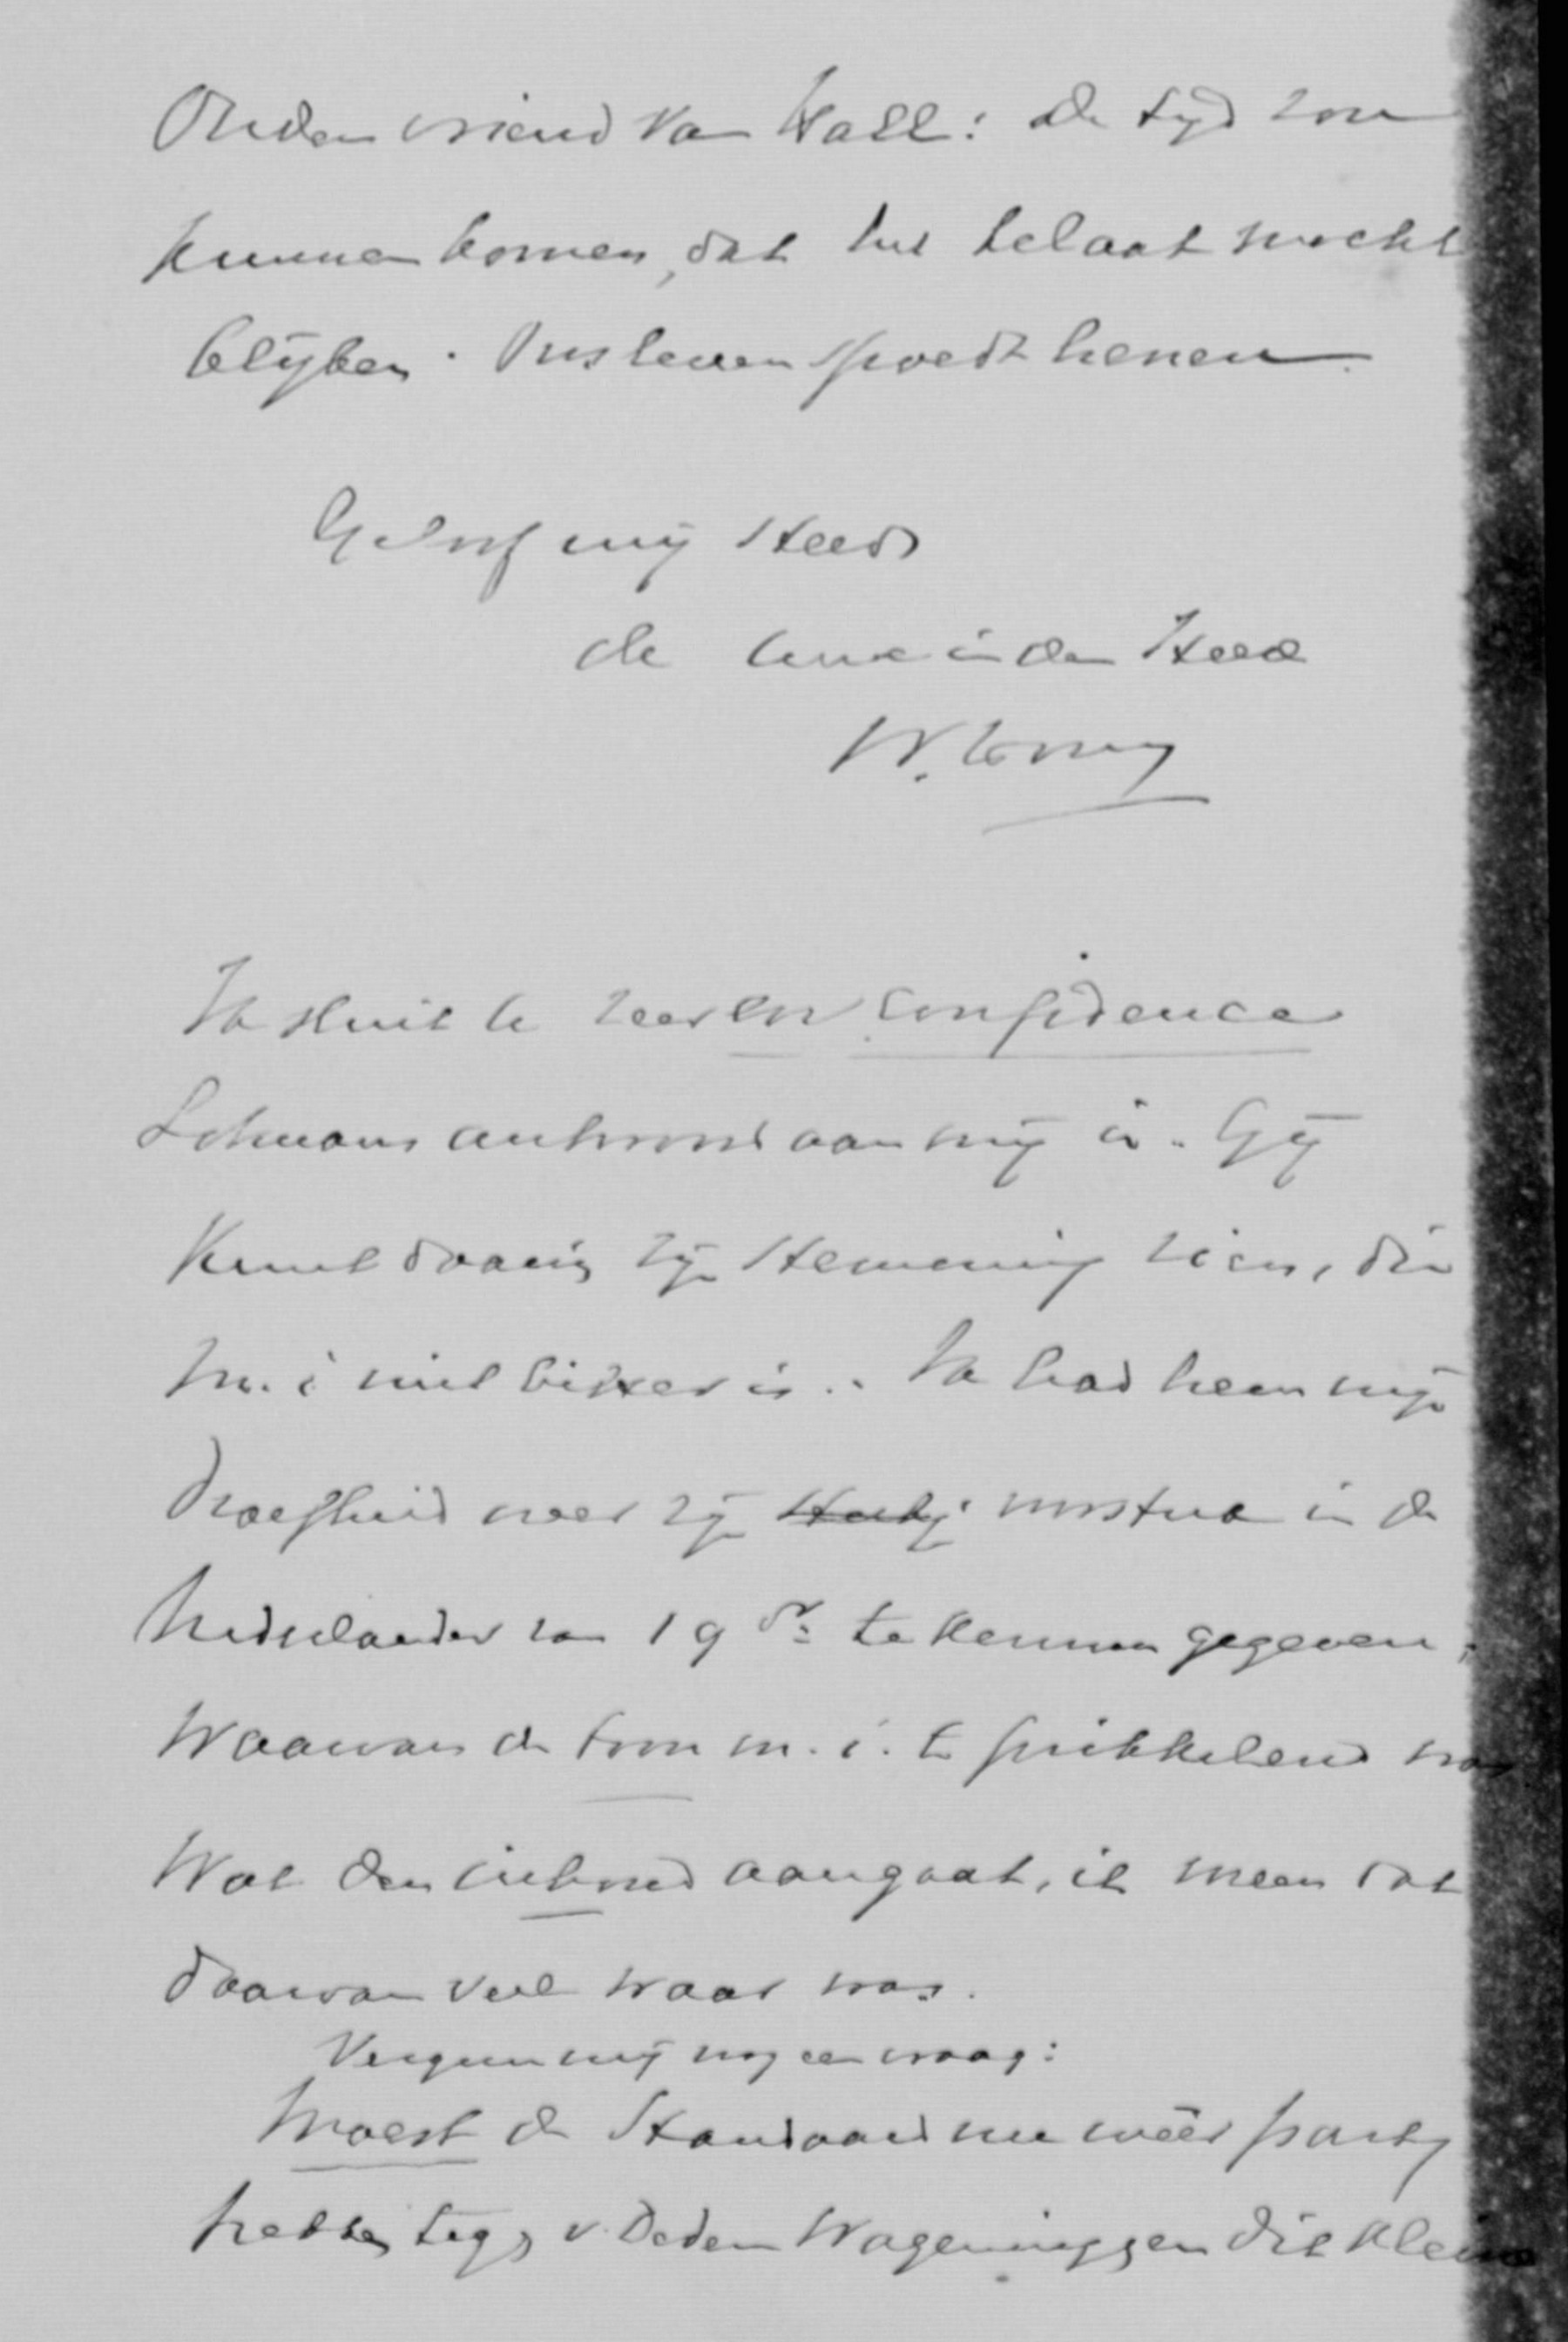 Ouden vriend van Hall: de tijd zou
kunnen komen, dat het te laat mocht
blijken. Ons leven spoedt henen.
Geloof mij steeds
de Uwe in den Heere
W. 
Ik sluit U zeer en confidence
Lohmans antwoord aan mij in. Gij
kunt daarin zijn stemming zien, die
m. i niet bitter is. Ik had hem mijn
droefheid over zijn in de
Nederlander van 19 dr te kennen gegeven;
Waarvan de toon m. i. te prikkelend was
Wat den inhoud aangaat, ik meen dat
daarvan veel waar was.
Vergun mij nog een vraag:
Moest de Standaard nu wéér partij
trekken tegen v. Dedem Wageningen die kleine